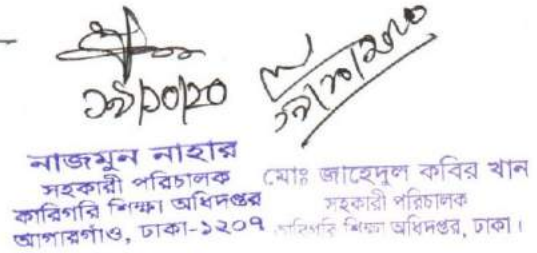 ১৯/১০/২০
নাজমুন নাহার
সহকারী পরিচালক
কারিগরি শিক্ষা অধিদপ্তর
আগারগাঁও, ঢাকা-১২০৭
মোঃ জাহেদুল কবির খান
সহকারী পরিচালক
কারিগরি শিক্ষা অধিদপ্তর, ঢাকা।